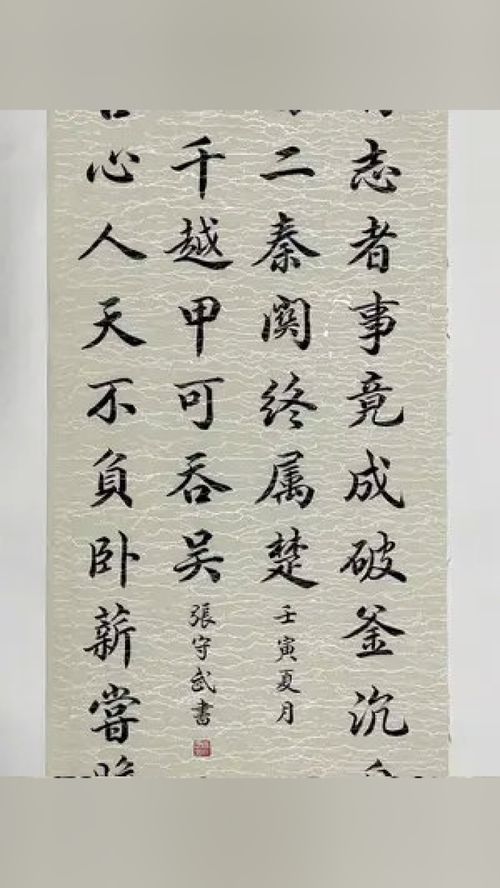 志者事竟成破釜沉
二秦關终属楚
壬寅夏月
心人天不負卧薪嘗
千越甲可吞吴
張守武書